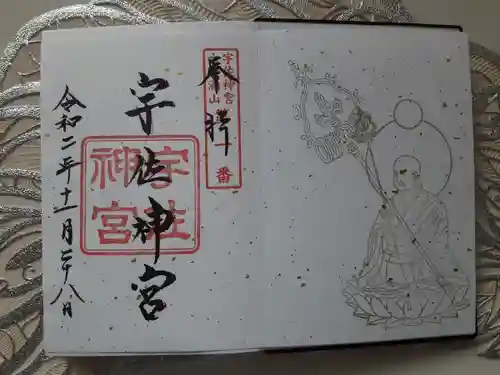 奉拝
宇佐神宮
六郷満山
一番
宇佐神宮
宇佐神宮
令和二年十一月二十八日